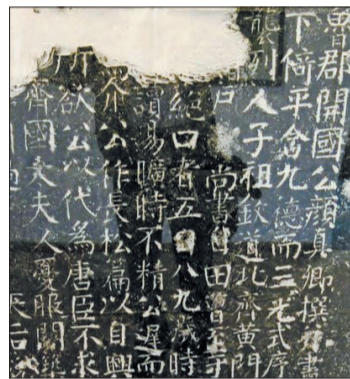 魯郡開國公顏真卿撰并書
下倍平會九德而三光式序
龍列人子祖欽道北齊黃門
戶尚書田曹至于
絕口者五日八九歲時
讀易曠時不精公遲而
公作長松篇以自興
所欲公以代為唐臣不求
齊國太夫人憂服闋
天后